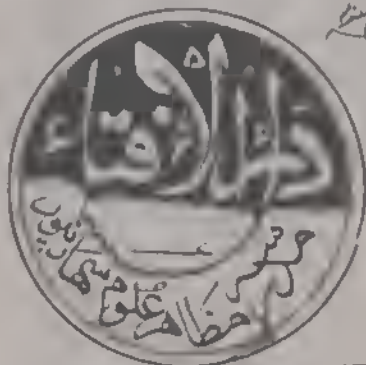 دار الافتاء
مدرسہ مظاہر علوم سہارنپور